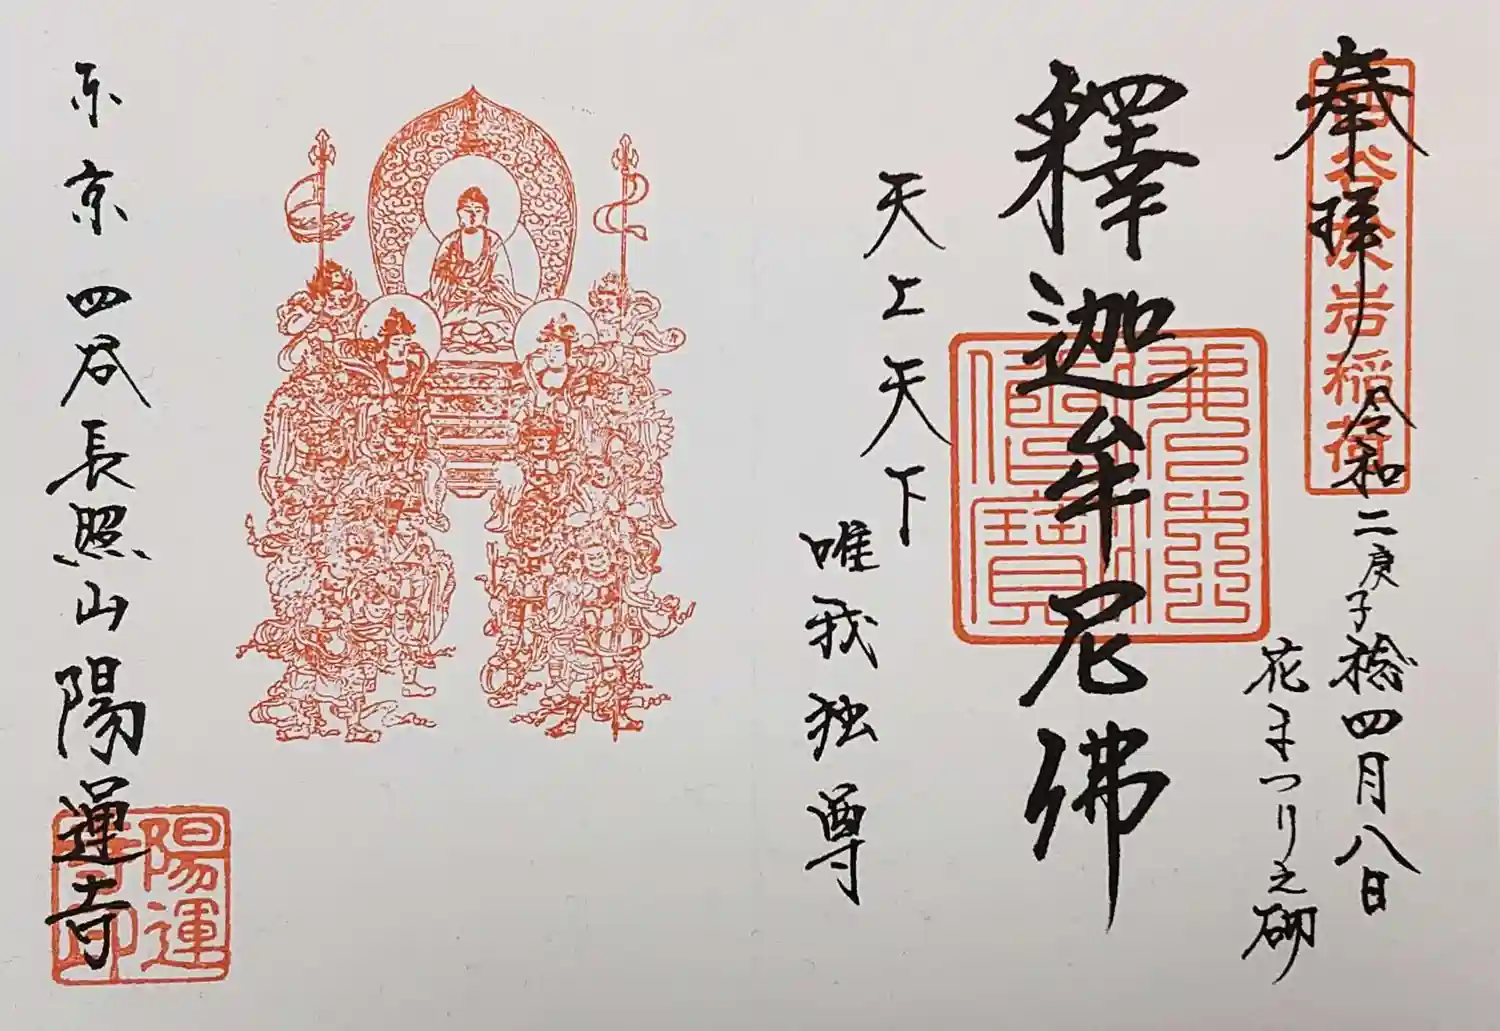 奉拝 令和二庚子稔四月八日
四谷於岩稲荷
花まつり之砌
釋迦牟尼佛
佛法僧寶
天上天下
唯我独尊
东京四谷長照山陽運寺
陽運寺印